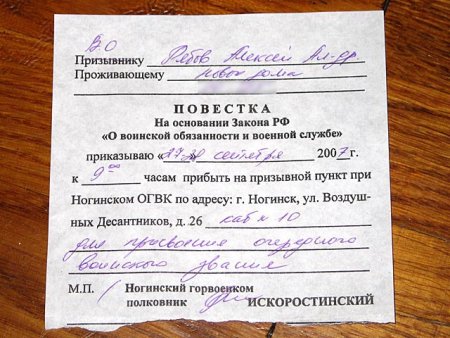 В.О
Призывнику Рябов Алексей Ал-др.
Проживающему
ПОВЕСТКА
На основании Закона РФ
«О воинской обязанности и военной службе»
приказываю « сентября 2007г.
к 9 00 часам прибыть на призывной пункт при
Ногинском ОГВК по адресу: г. Ногинск, ул. Воздуш-
ных Десантников, д. 26 каб № 10
для присвоения очередного
воинского звания
М.П. Ногинский горвоенком
полковник ИСКОРОСТИНСКИЙ